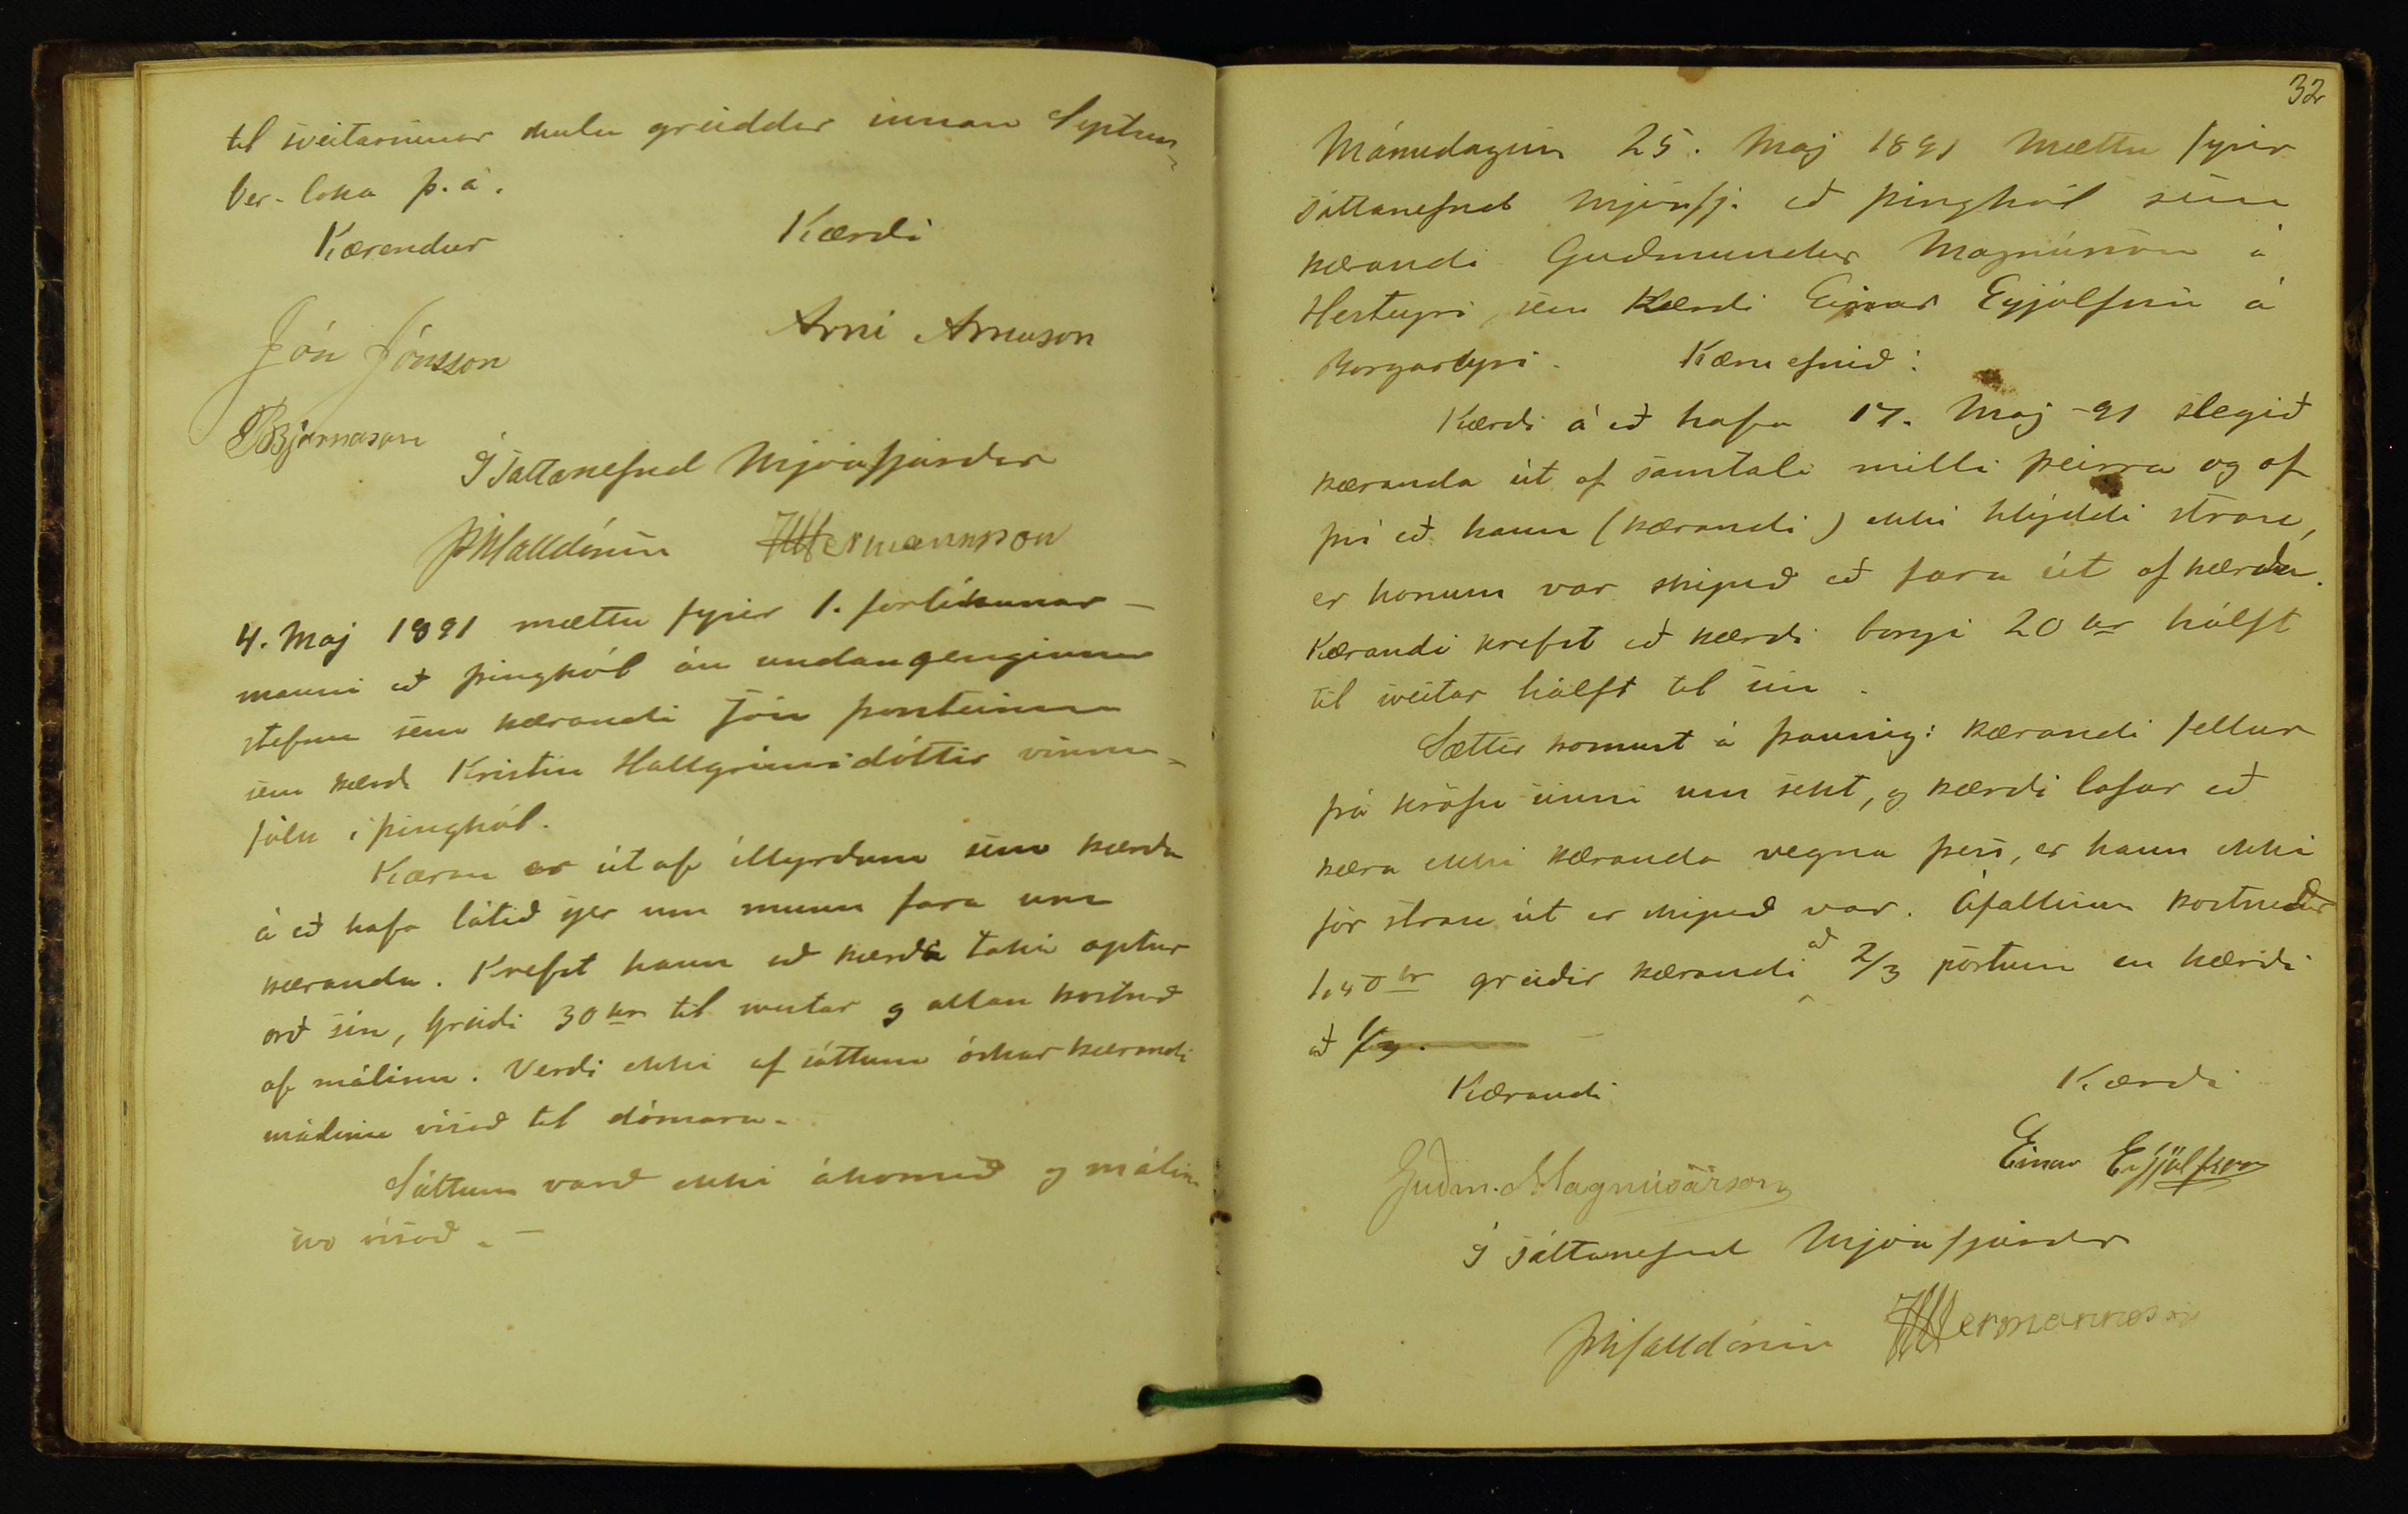 til sveitarinnar skulu greiddar innan Septem-
ber-loka þ. á.
Kærendur Kærði
Jón Jónsson Árni Arnason
Bjarnason
Í sáttanefnd Mjóafjarðar
HHermannsson
4. Maj 1891 mættu fyrir 1. forlíkunar-
manni að Þinghól án undangenginnar
stefnu sem kærandi Jón Þorsteinsson
sem kærð Kristín Hallgrímsdóttir vinnu-
kona í Þinghól.
Kæran er út af illyrðum sem kærða
á að hafa látið sjer um munn fara um
kæranda. Krefst hann að kærða taki aptur
orð sín, greiði 30 kr til sveitar og allan kostnað
af málinu. Verði ekki af sáttum óskar kærandi
málinu vísað til dómara.
Sáttum varð ekki ákomið og málinu
svo vísað. -
32
Mánudaginn 25. Maj 1891 mættu fyrir
sáttanefnd Mjóafj. að Þinghól sem
kærandi Guðmundur Magnússon á
Hesteyri, sem kærði Einar Eyjólfsson á
Borgareyri. Kæruefnið:
Kærði á að hafa 17. Maj -91 slegið
kæranda út af samtali milli þeirra og af
því að hann (kærandi) ekki hlýddi strax,
er honum var skipað að fara út af kærða.
Kærandi krefst að kærði borgi 20 kr hálft
til sveitar hálft til sín.
Sættir komust á þannig: kærandi fellur
frá kröfu sinni um sekt, og kærði lofar að
kæra ekki kæranda vegna þess, er hann ekki
fór strax út er skipað var. Áfallinn kostnaður
1,40 kr greiðir kærandi að 2/3 pörtum en kærði
að 1/3.
Kærandi Kærði
Guðm. Magnússon Einar Eyjólfsson
Í sáttanefnd Mjóafjarðar
HHermannsson